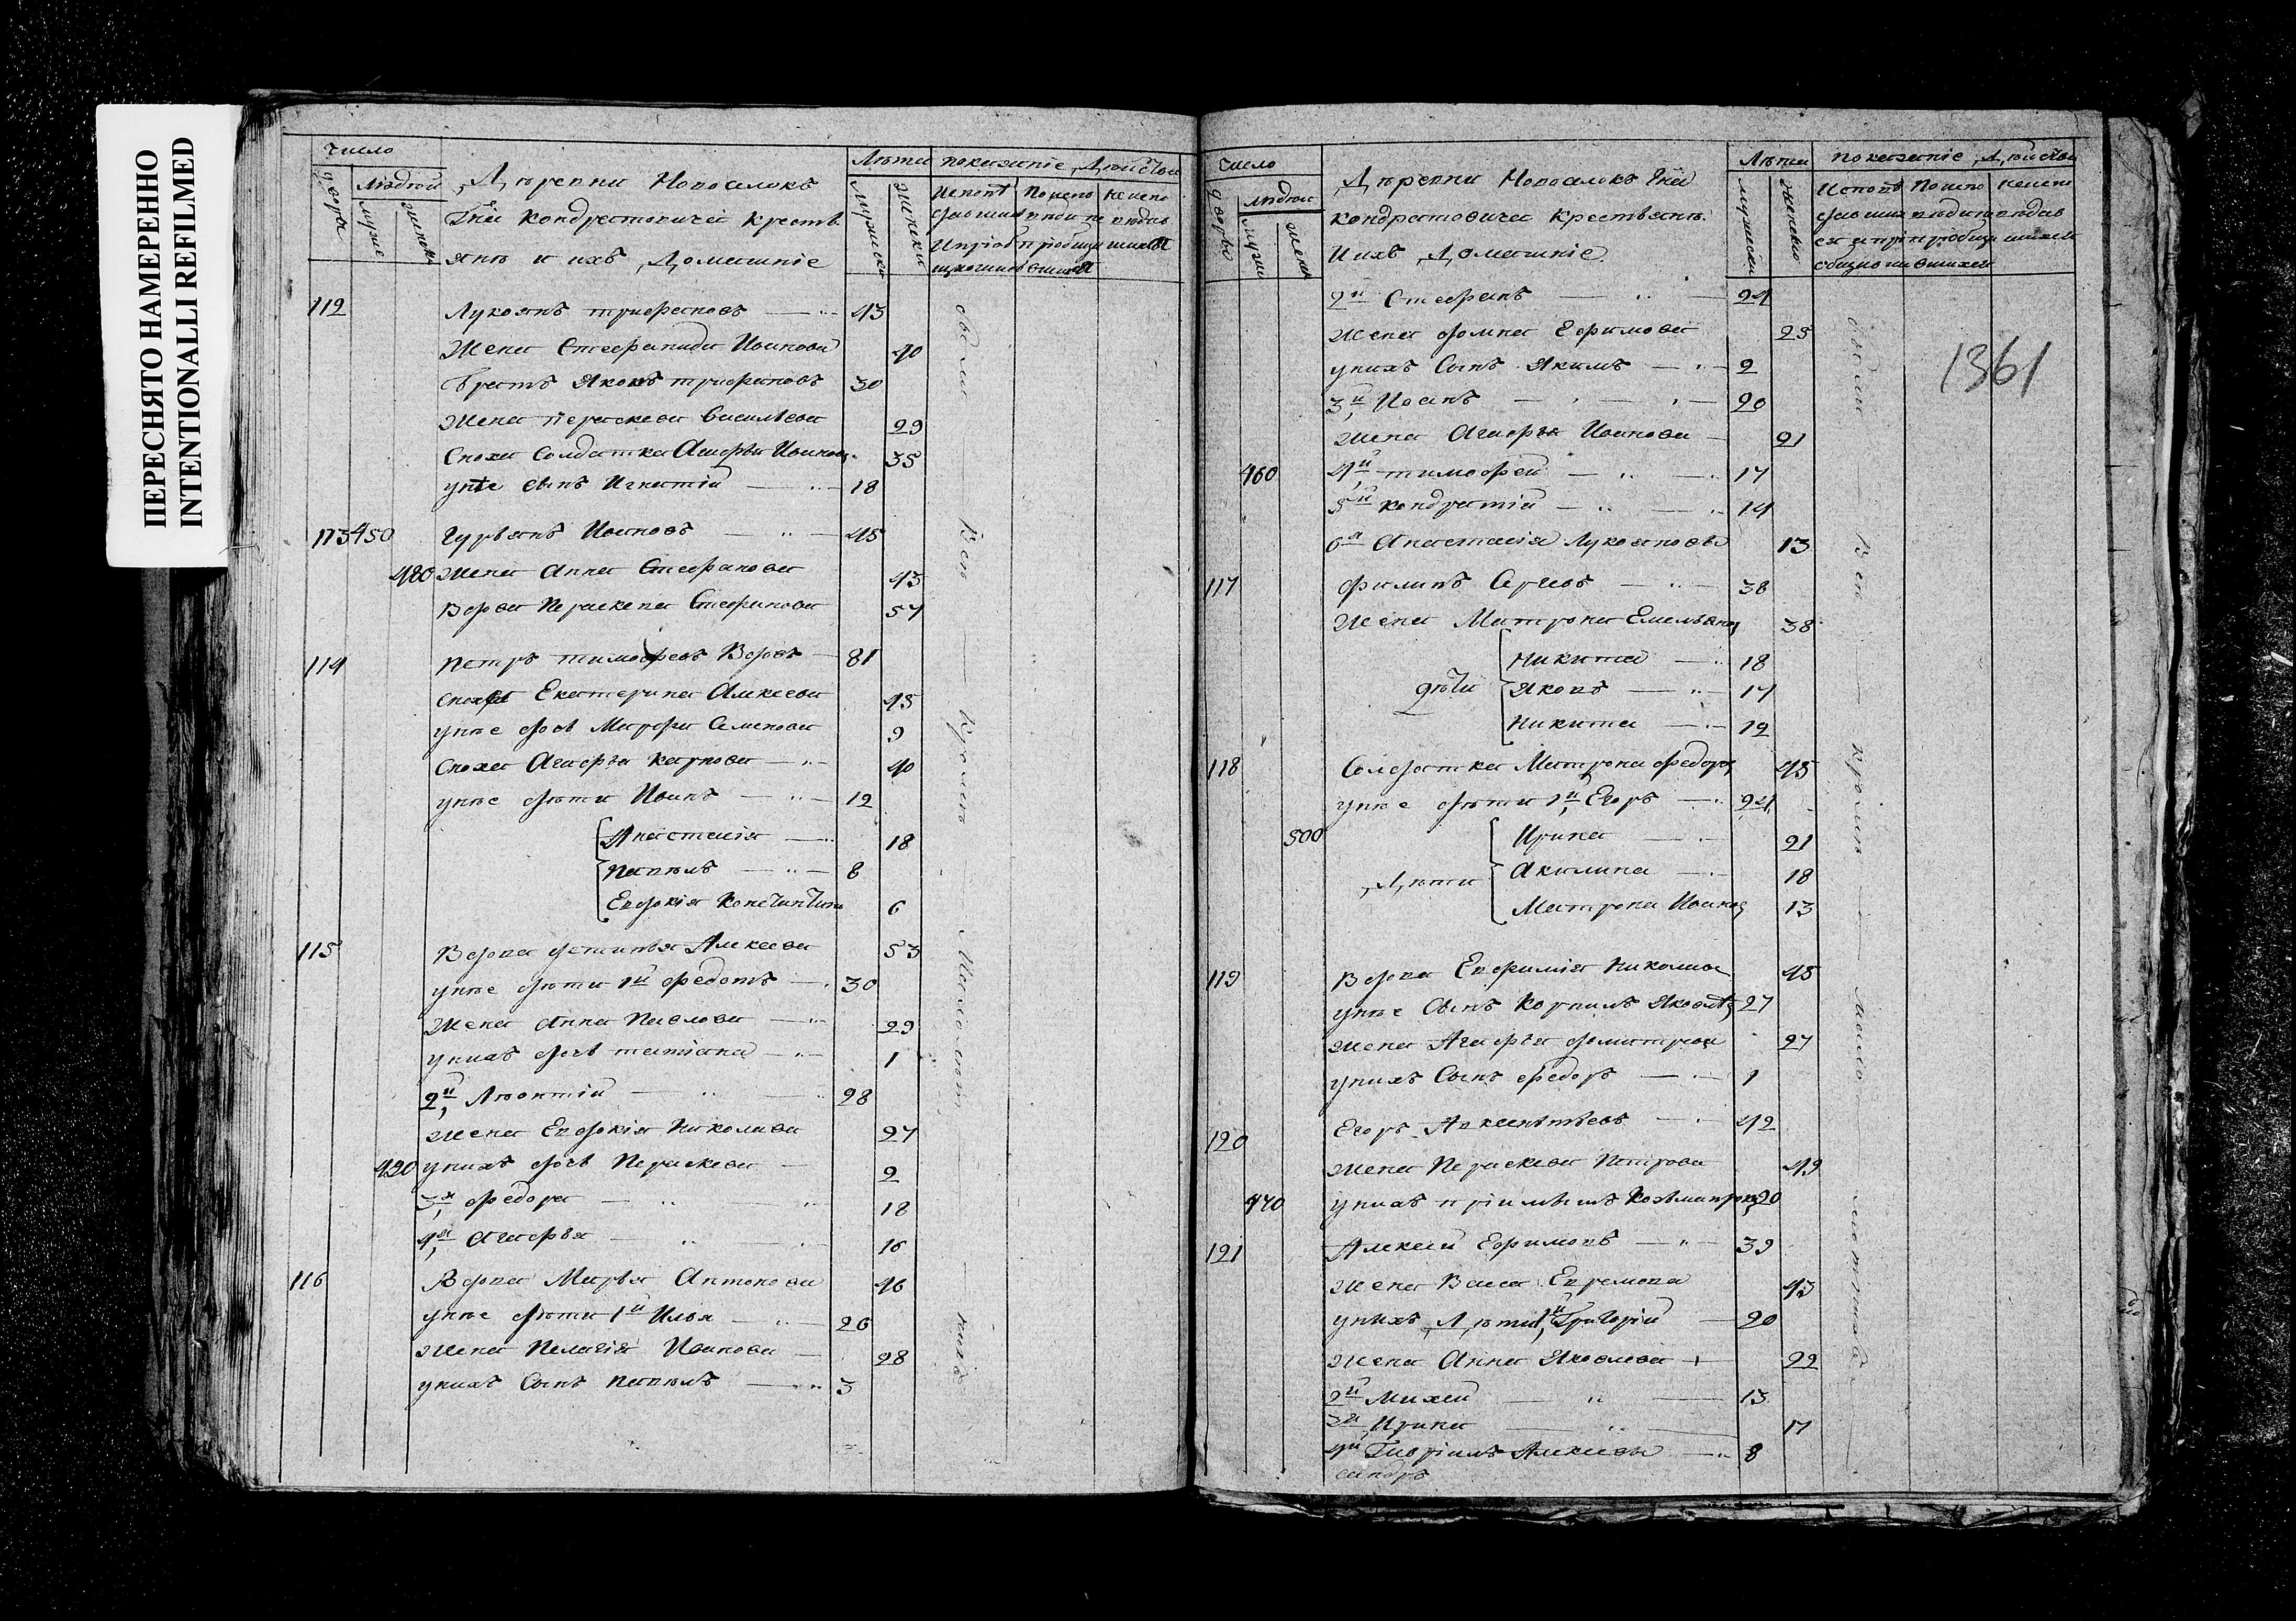 ПЕРЕСНЯТО НАМЕРЕННО
INTENTIONALLI REFILMED
Число
двора
Людей
муже
женска
Деревни Новоселокъ
Гна Кондратовича крестья
янъ и ихъ Домашніе
Лѣта
мужески
женски
показаніе Дѣйстви
112 Лукоянъ трифоновъ 43
Жена Стефанида Иванова 40
Братъ Яковъ трифоновъ 30
Жена Параскева Васильева 29
Сноха Солдатка Агафья Иванов 35
у нее сынъ Игнатій 18
113 450 Гурьянъ Ивановъ 45
480 Жена Анна Стефанова 43
Вдова Параскева Стефанова 57
114 Петръ тимофеевъ Вдовъ 81
сноха Екатерина Алексеева 45
у нее дочь Марфа Семенова 9
Сноха Агафья Карпова 40
у нее дѣти Иванъ 12
Анастасія 18
Павелъ 8
Евдокія 6
115 Вдова Устинья Алексеева 53
у нее дѣти 1й Федотъ 30
Жена Анна Павлова 29
у нихъ дочь татіана 1
2й Леонтій 28
Жена Евдокія Николаева 27
490 у нихъ дочь Параскева 2
3я Федора 18
4я Агафья 16
116 Вдова Марья Антонова 46
у нее дѣти 1й Илья 26
Жена Пелагія Иванова 28
у нихъ Сынъ Павелъ 3
сви ли
Всѣ
кромѣ
Малолѣт
нихъ
Число
двора
людей
мужи
женск
Деревни Новоселокъ Гна
Кондратовича крестьянъ
И ихъ Домашніе
Лѣта
мужески
женски
показаніе Дѣйстви
2й Стефанъ 24
Жена Домна Ефимова 25
у нихъ Сынъ Якимъ 2
3й Иванъ 20
Жена Агафья Иванова 21
460 4й тимофей 17
5й Кондратій 14
6я Анастасія Лукоянова 13
1361
117 Филипъ Сергевъ 38
Жена Матрона Емельянов 38
дѣти
Никита 18
Яковъ 17
Никита 12
118 Солдатка Матрона Федоро 45
у нее дѣти 1й Егоръ 24
500 Ирина 21
Дѣти Акилина 18
Матрона Иванов 13
119 Вдова Евфимія Николае 45
у нее Сынъ Корнилъ Яковле 27
Жена Агафья Дмитриева 27
у нихъ Сынъ Федоръ 1
120 Егоръ Авксентьевъ 42
Жена Параскева Петрова 49
470 у нихъ пріимышъ 20
121 Алексеи Ефимовъ 39
Жена Васса Ефремова 43
у нихъ Дѣти 1й Григорій 20
Жена Анна Яковлева 22
2й Михей 13
3я Ирина 17
4й Гавріилъ Алексеевы 8
Всѣ
кромѣ
мало
лѣтнихъ